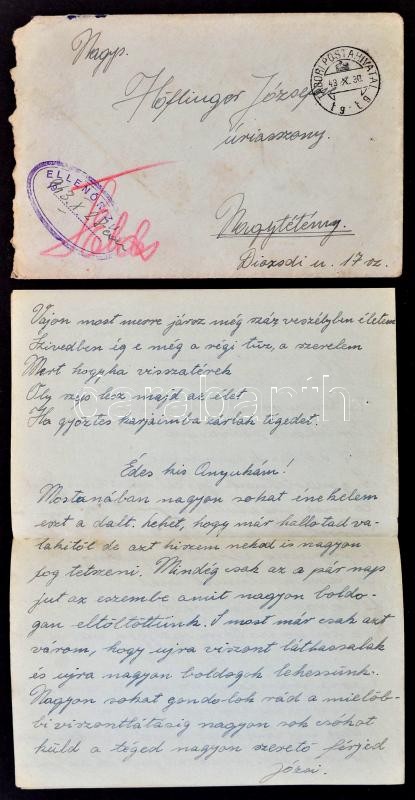 Nagys.
Höflinger József
úriasszony.
Nagytétény.
Diozsdi u. 17 sz.
TÁBORI POSTAHIVATAL
43. X. 30.
ELLENŐR
Vajon most merre jársz még száz veszélyben életem
Szivedben ég e még a régi tüz, a szerelem
Mert hogyha visszatérek
Oly szép lesz majd az élet
Ha győztes karjaimba zárlak tégedet.
Édes kis Anyukám!
Mostanában nagyon sokat énekelem
ezt a dalt. Lehet, hogy már hallottad va-
lakitől de azt hiszem neked is nagyon
fog tetszeni. Mindég csak az a pár nap
jut az eszembe amit nagyon boldo-
gan eltöltöttünk. S most már csak azt
várom, hogy ujra viszont láthassalak
és ujra nagyon boldogok lehessünk.
Nagyon sokat gondolok rád a mielőb-
bi viszontlátásig nagyon sok csókot
küld a téged nagyon szerető férjed
Józsi.
darabanth